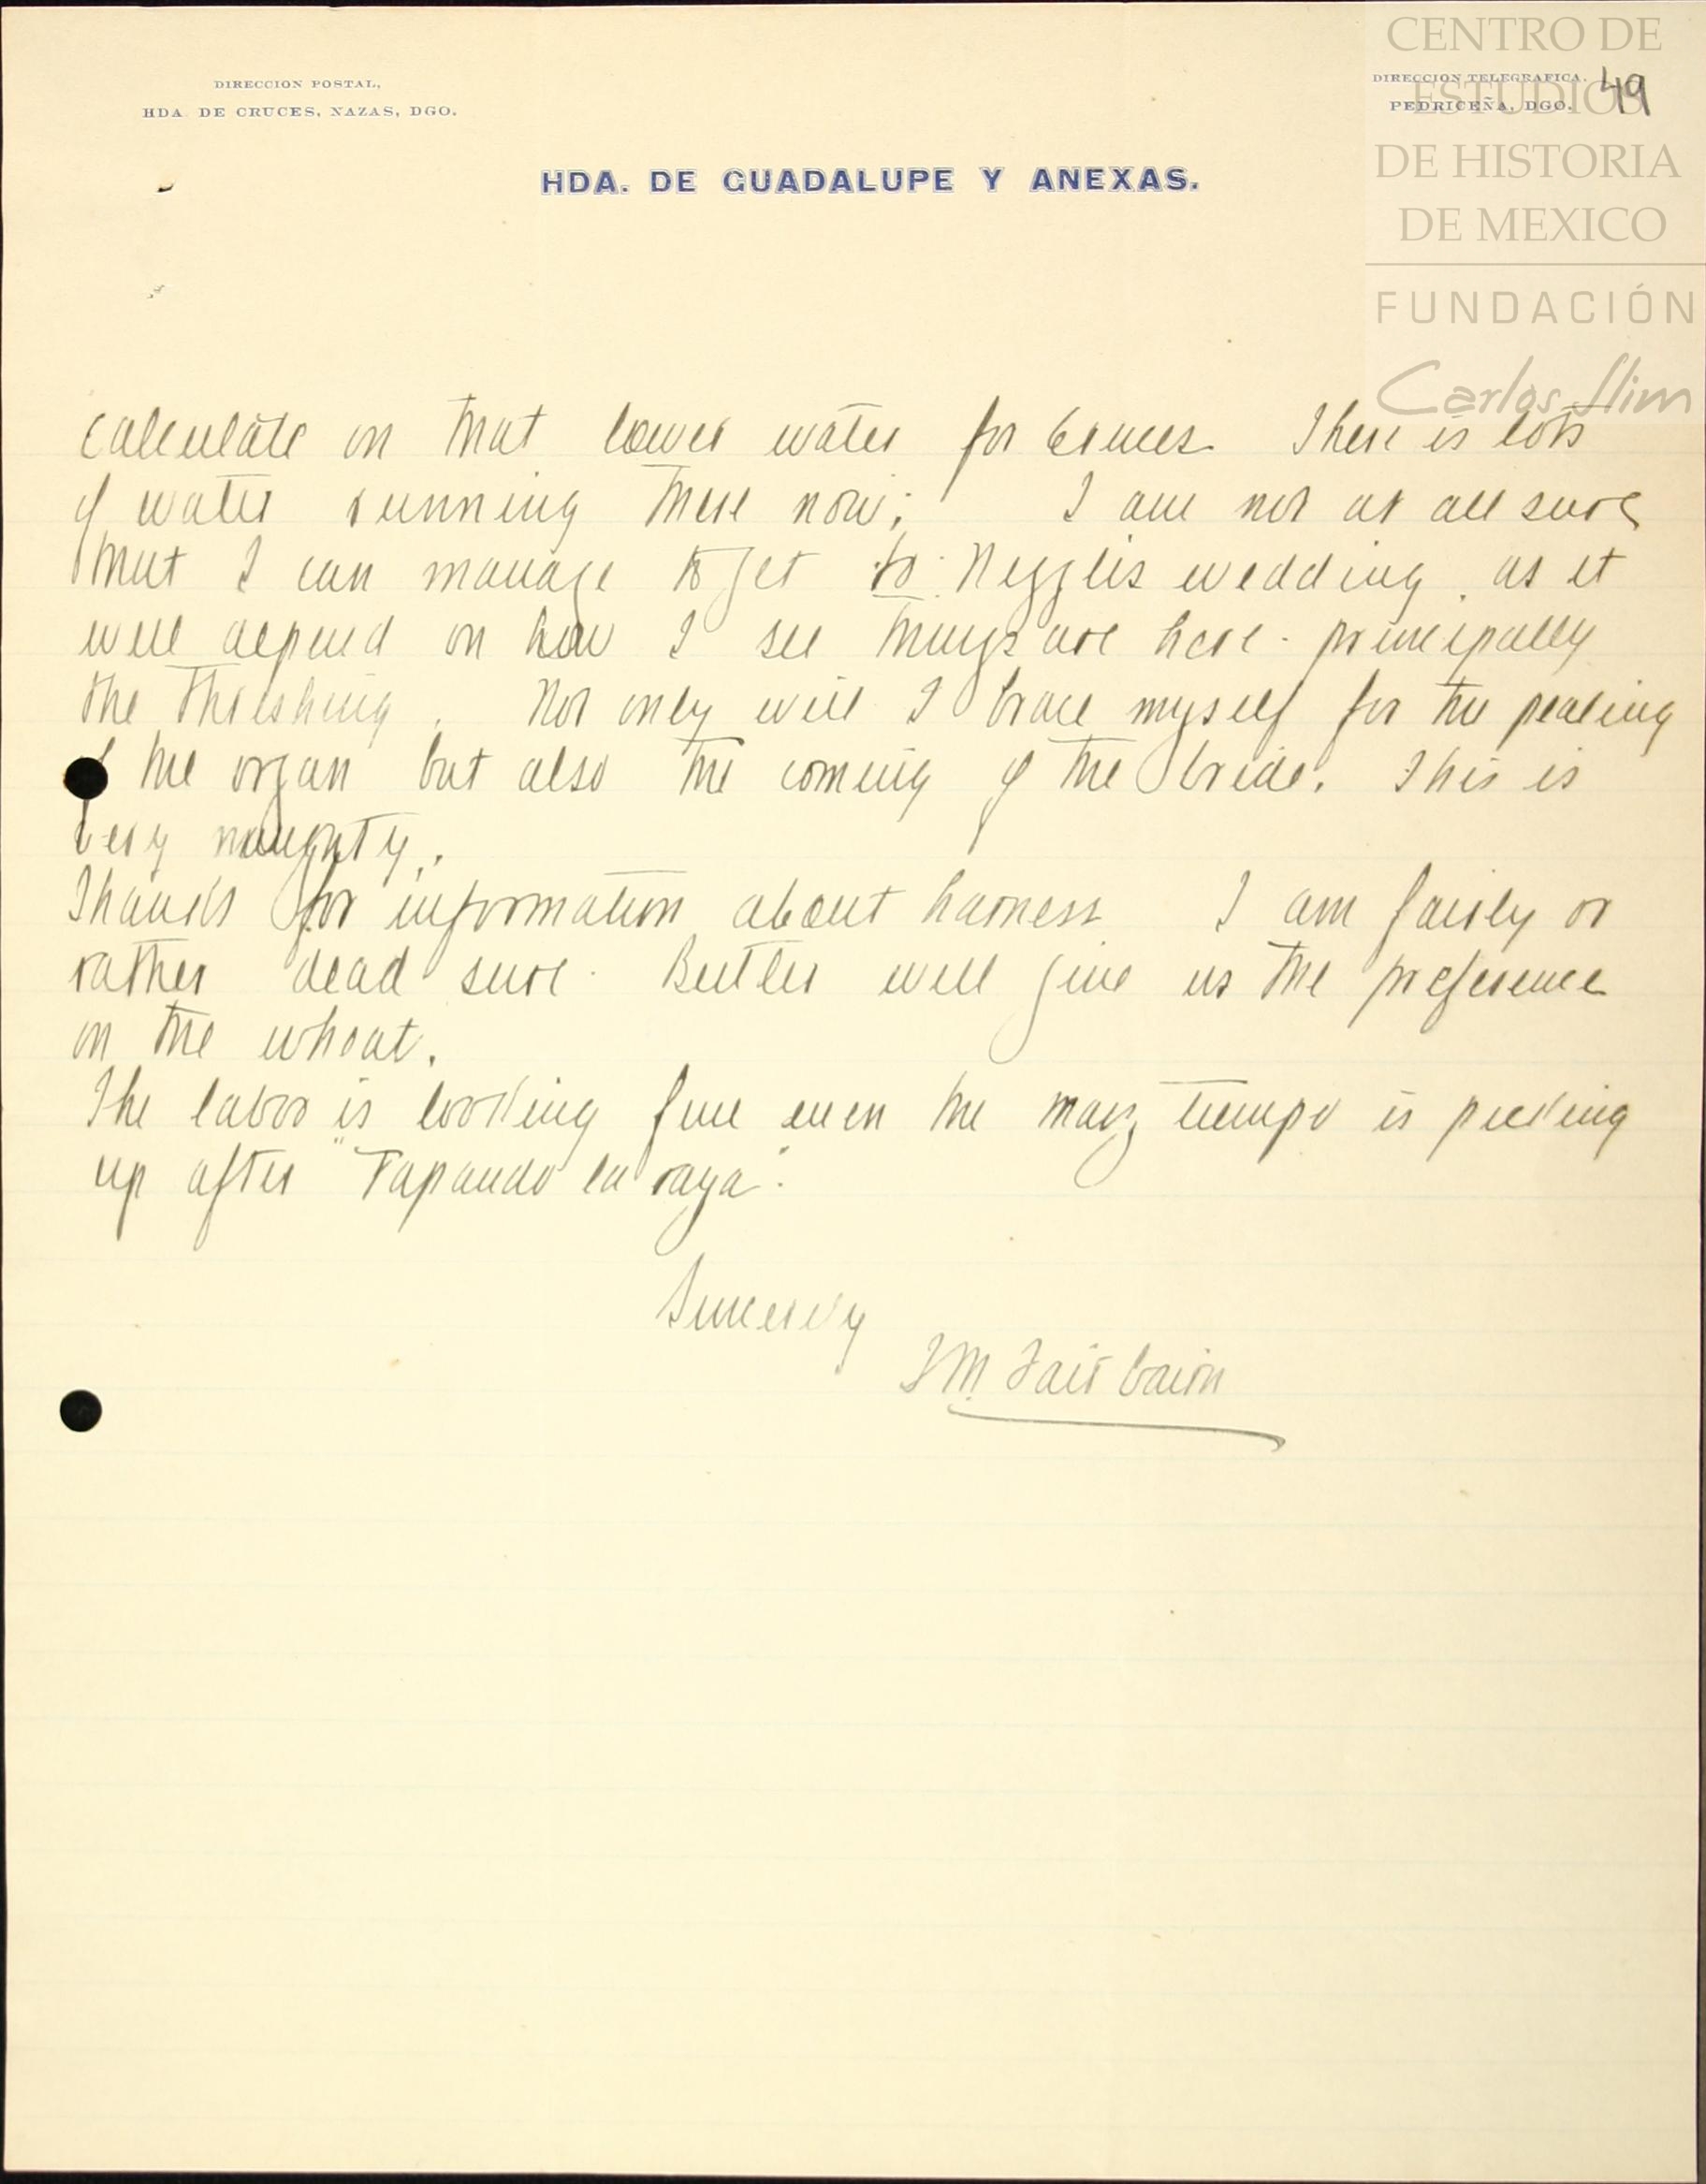 CENTRO DE
ESTUDIOS
DE HISTORIA
DE MEXICO
FUNDACIÓN
Carlos Slim
DIRECCION POSTAL,
HDA. DE CRUCES, NAZAS, DGO.
DIRECCION TELEGRAFICA.
PEDRICEÑA, DGO.
49
HDA. DE GUADALUPE Y ANEXAS.
calculate on that lower water for Cruces. There is lots
of water running there now; I am not at all sure
that I can manage to get to wedding, as it
will depend on how I see things are here - principally
the threshing. Not only will I brace myself for the pealing
of the organ but also the coming of the bride. This is
very naughty.
Thanks for information about harness I am fairly or
rather dead sure Butler will give us the preference
on the wheat.
The labor is looking fine even the maiz tiempo is picking
up after "Tapando la raya".
Sincerely
J M. Fairbairn